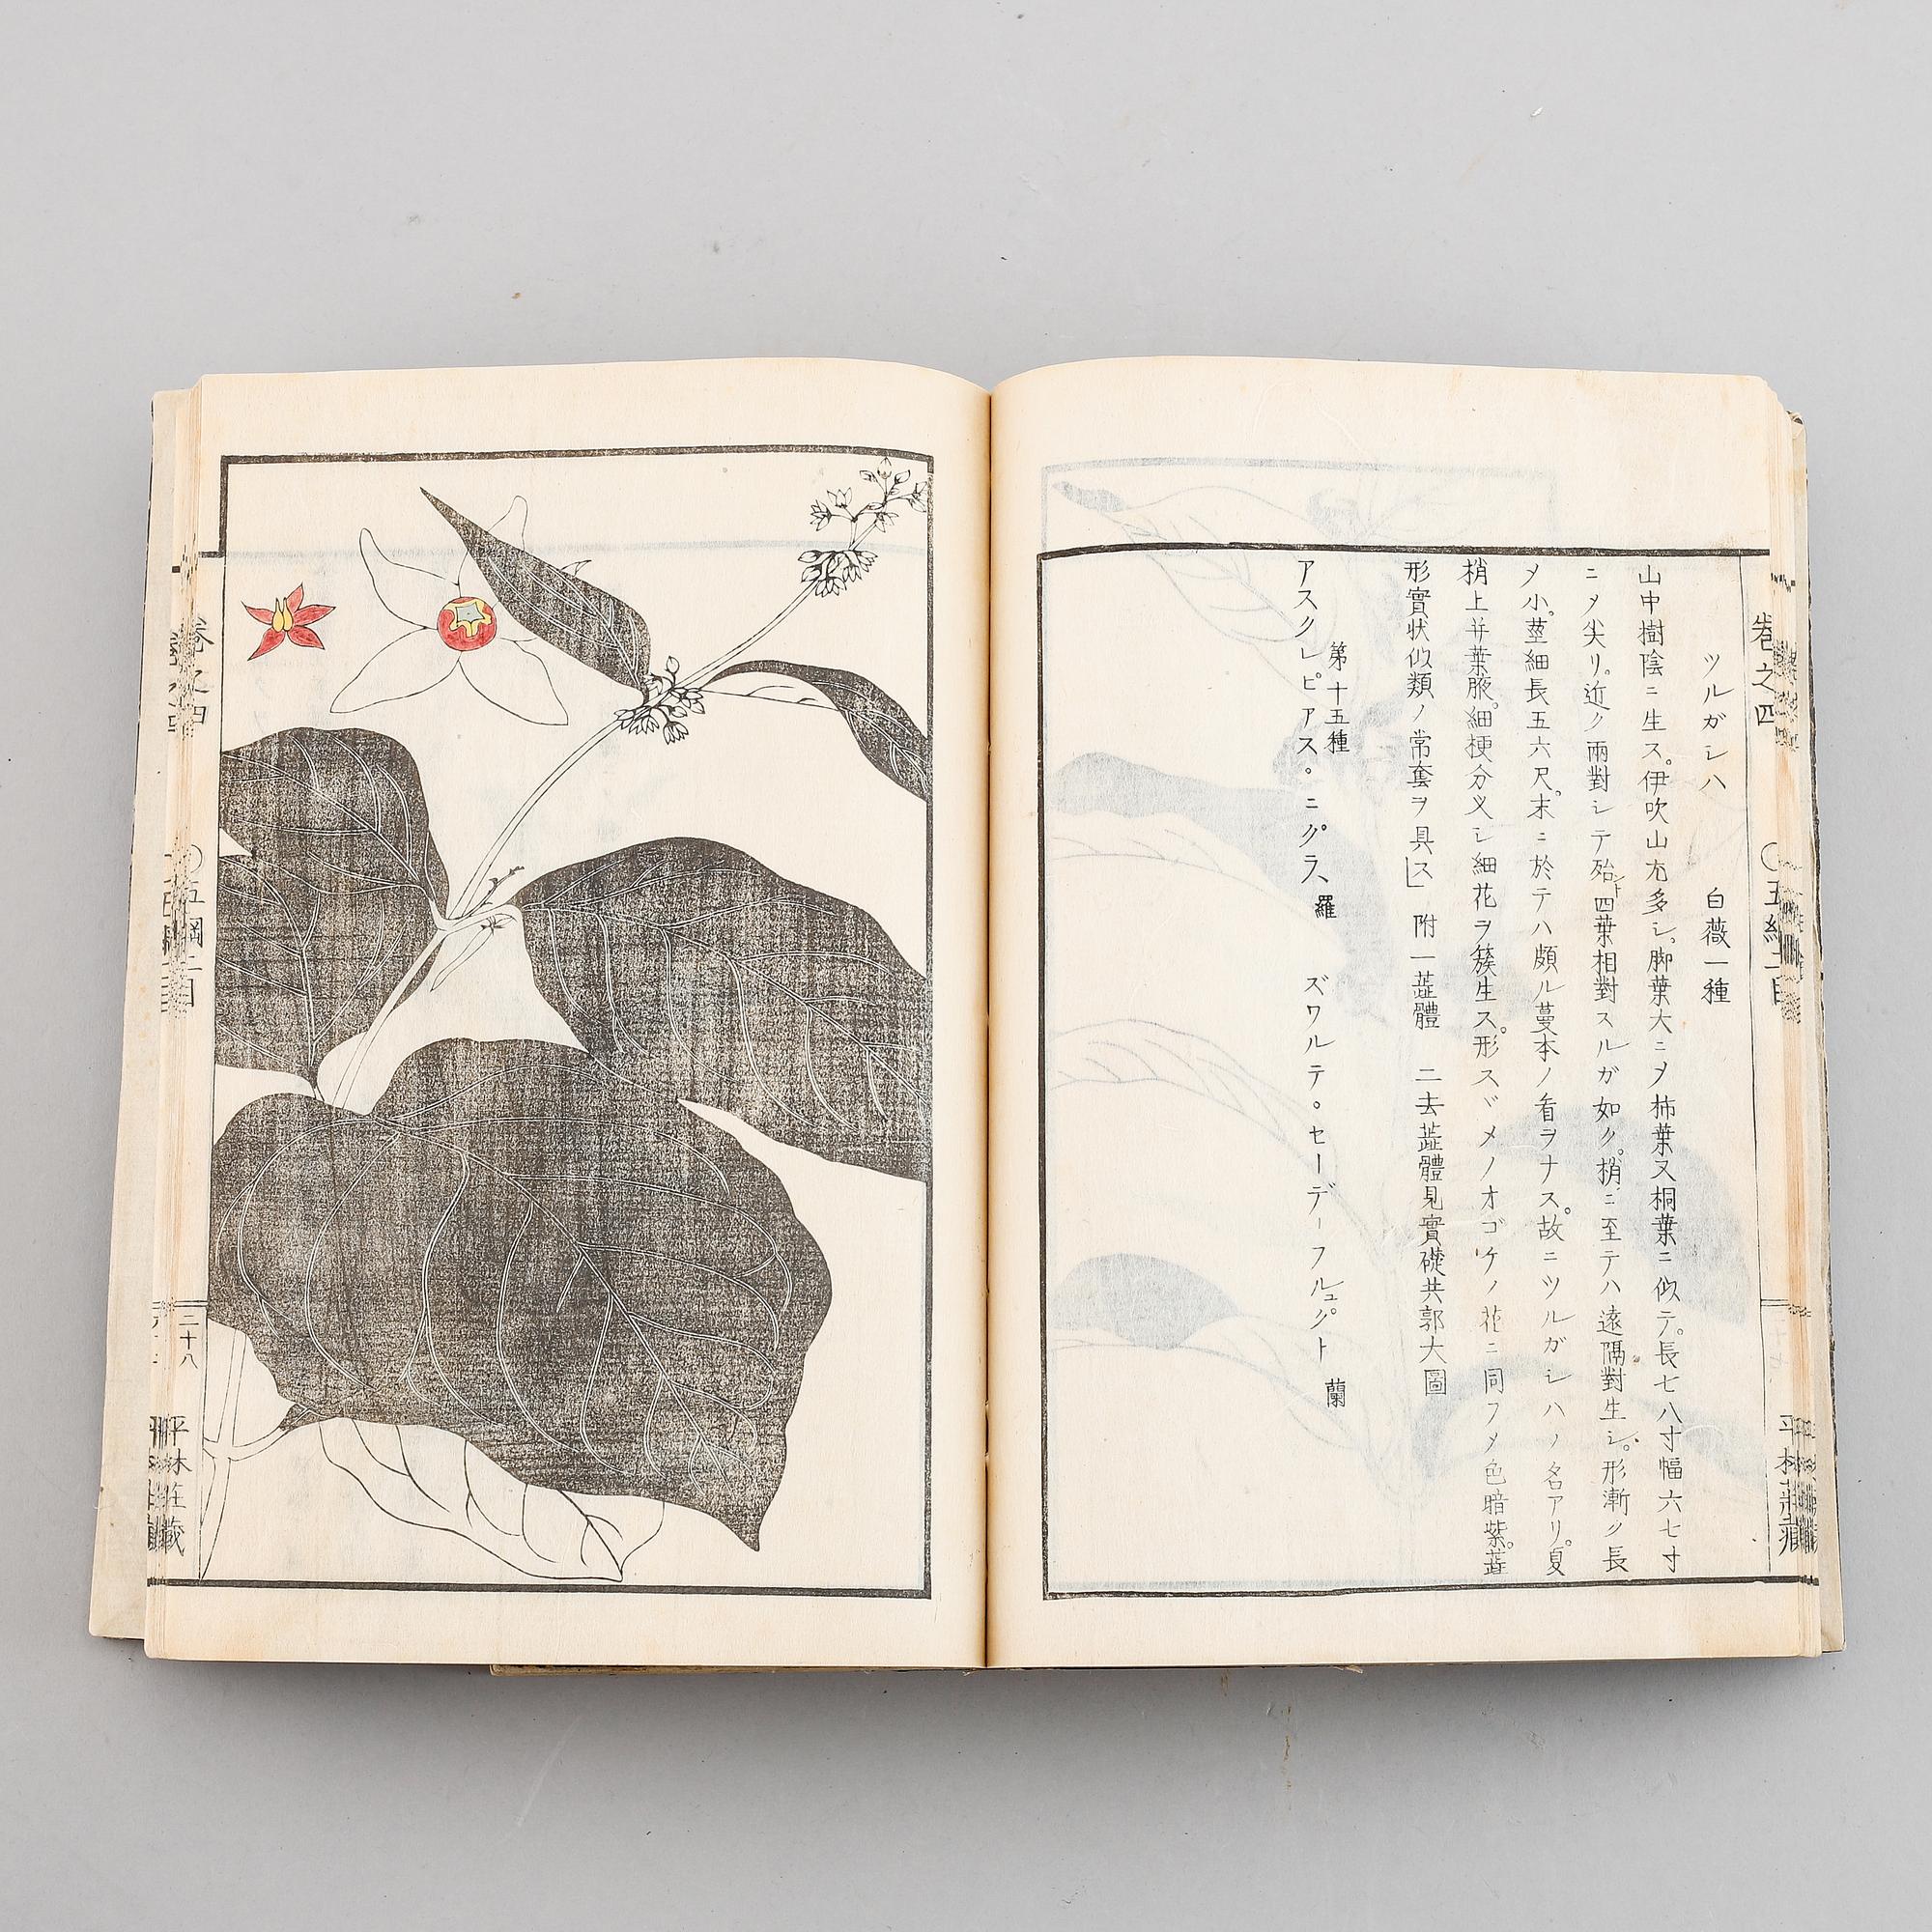 卷之四
○五綱二目
ツルガシハ 白薇一種
山中樹陰ニ生ス。伊吹山尤多シ。脚葉大ニメ柿葉又桐葉ニ似テ。長七八寸幅六七寸
ニメ尖リ。近ク兩對シテ殆ント四葉相對スルガ如ク。梢ニ至テハ遠隔對生シ。形漸ク長
メ小。莖細長五六尺。末ニ於テハ頗ル蔓本ノ看ヲナス。故ニツルガシハノ名アリ。夏
梢上并葉腋。細梗分义シ細花ヲ簇生ス。形スヾメノオゴケノ花ニ同フメ色暗紫。蕋
形實狀似類ノ常套ヲ具ス」 附 一蕋體 二去蕋體見實礎共郭大圖
第十五種
アスクレピアス。ニグラ、 羅 ズワルテ。セーデーフルュグト 蘭
卷之四
○五綱二目
二十八
平林莊藏